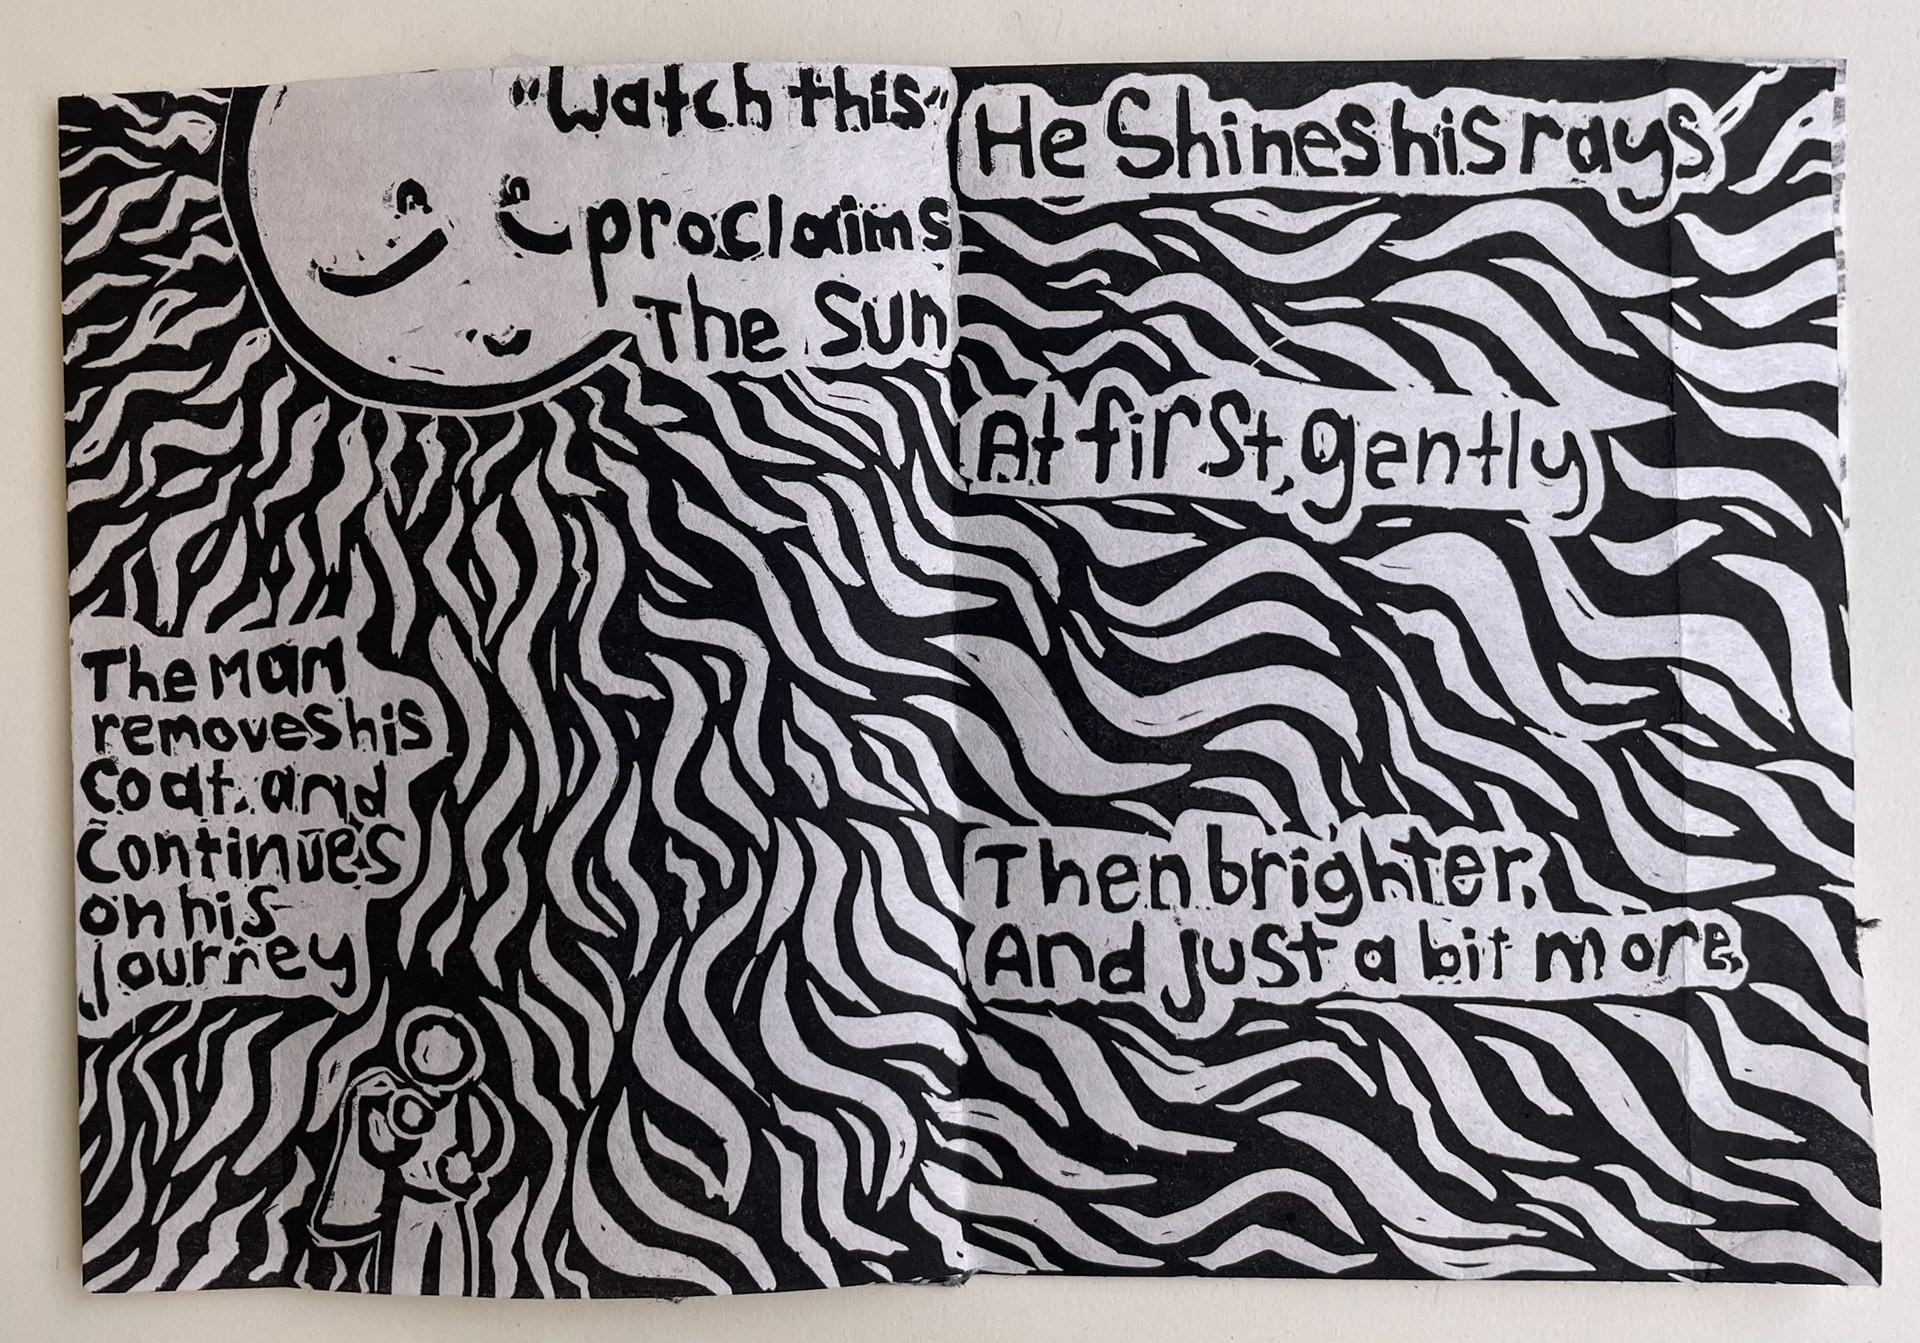 "Watch this"
proclaims
The Sun
The man
removes his
coat, and
continues
on his
journey
He Shines his rays
At first, gently
Then brighter.
And just a bit more.